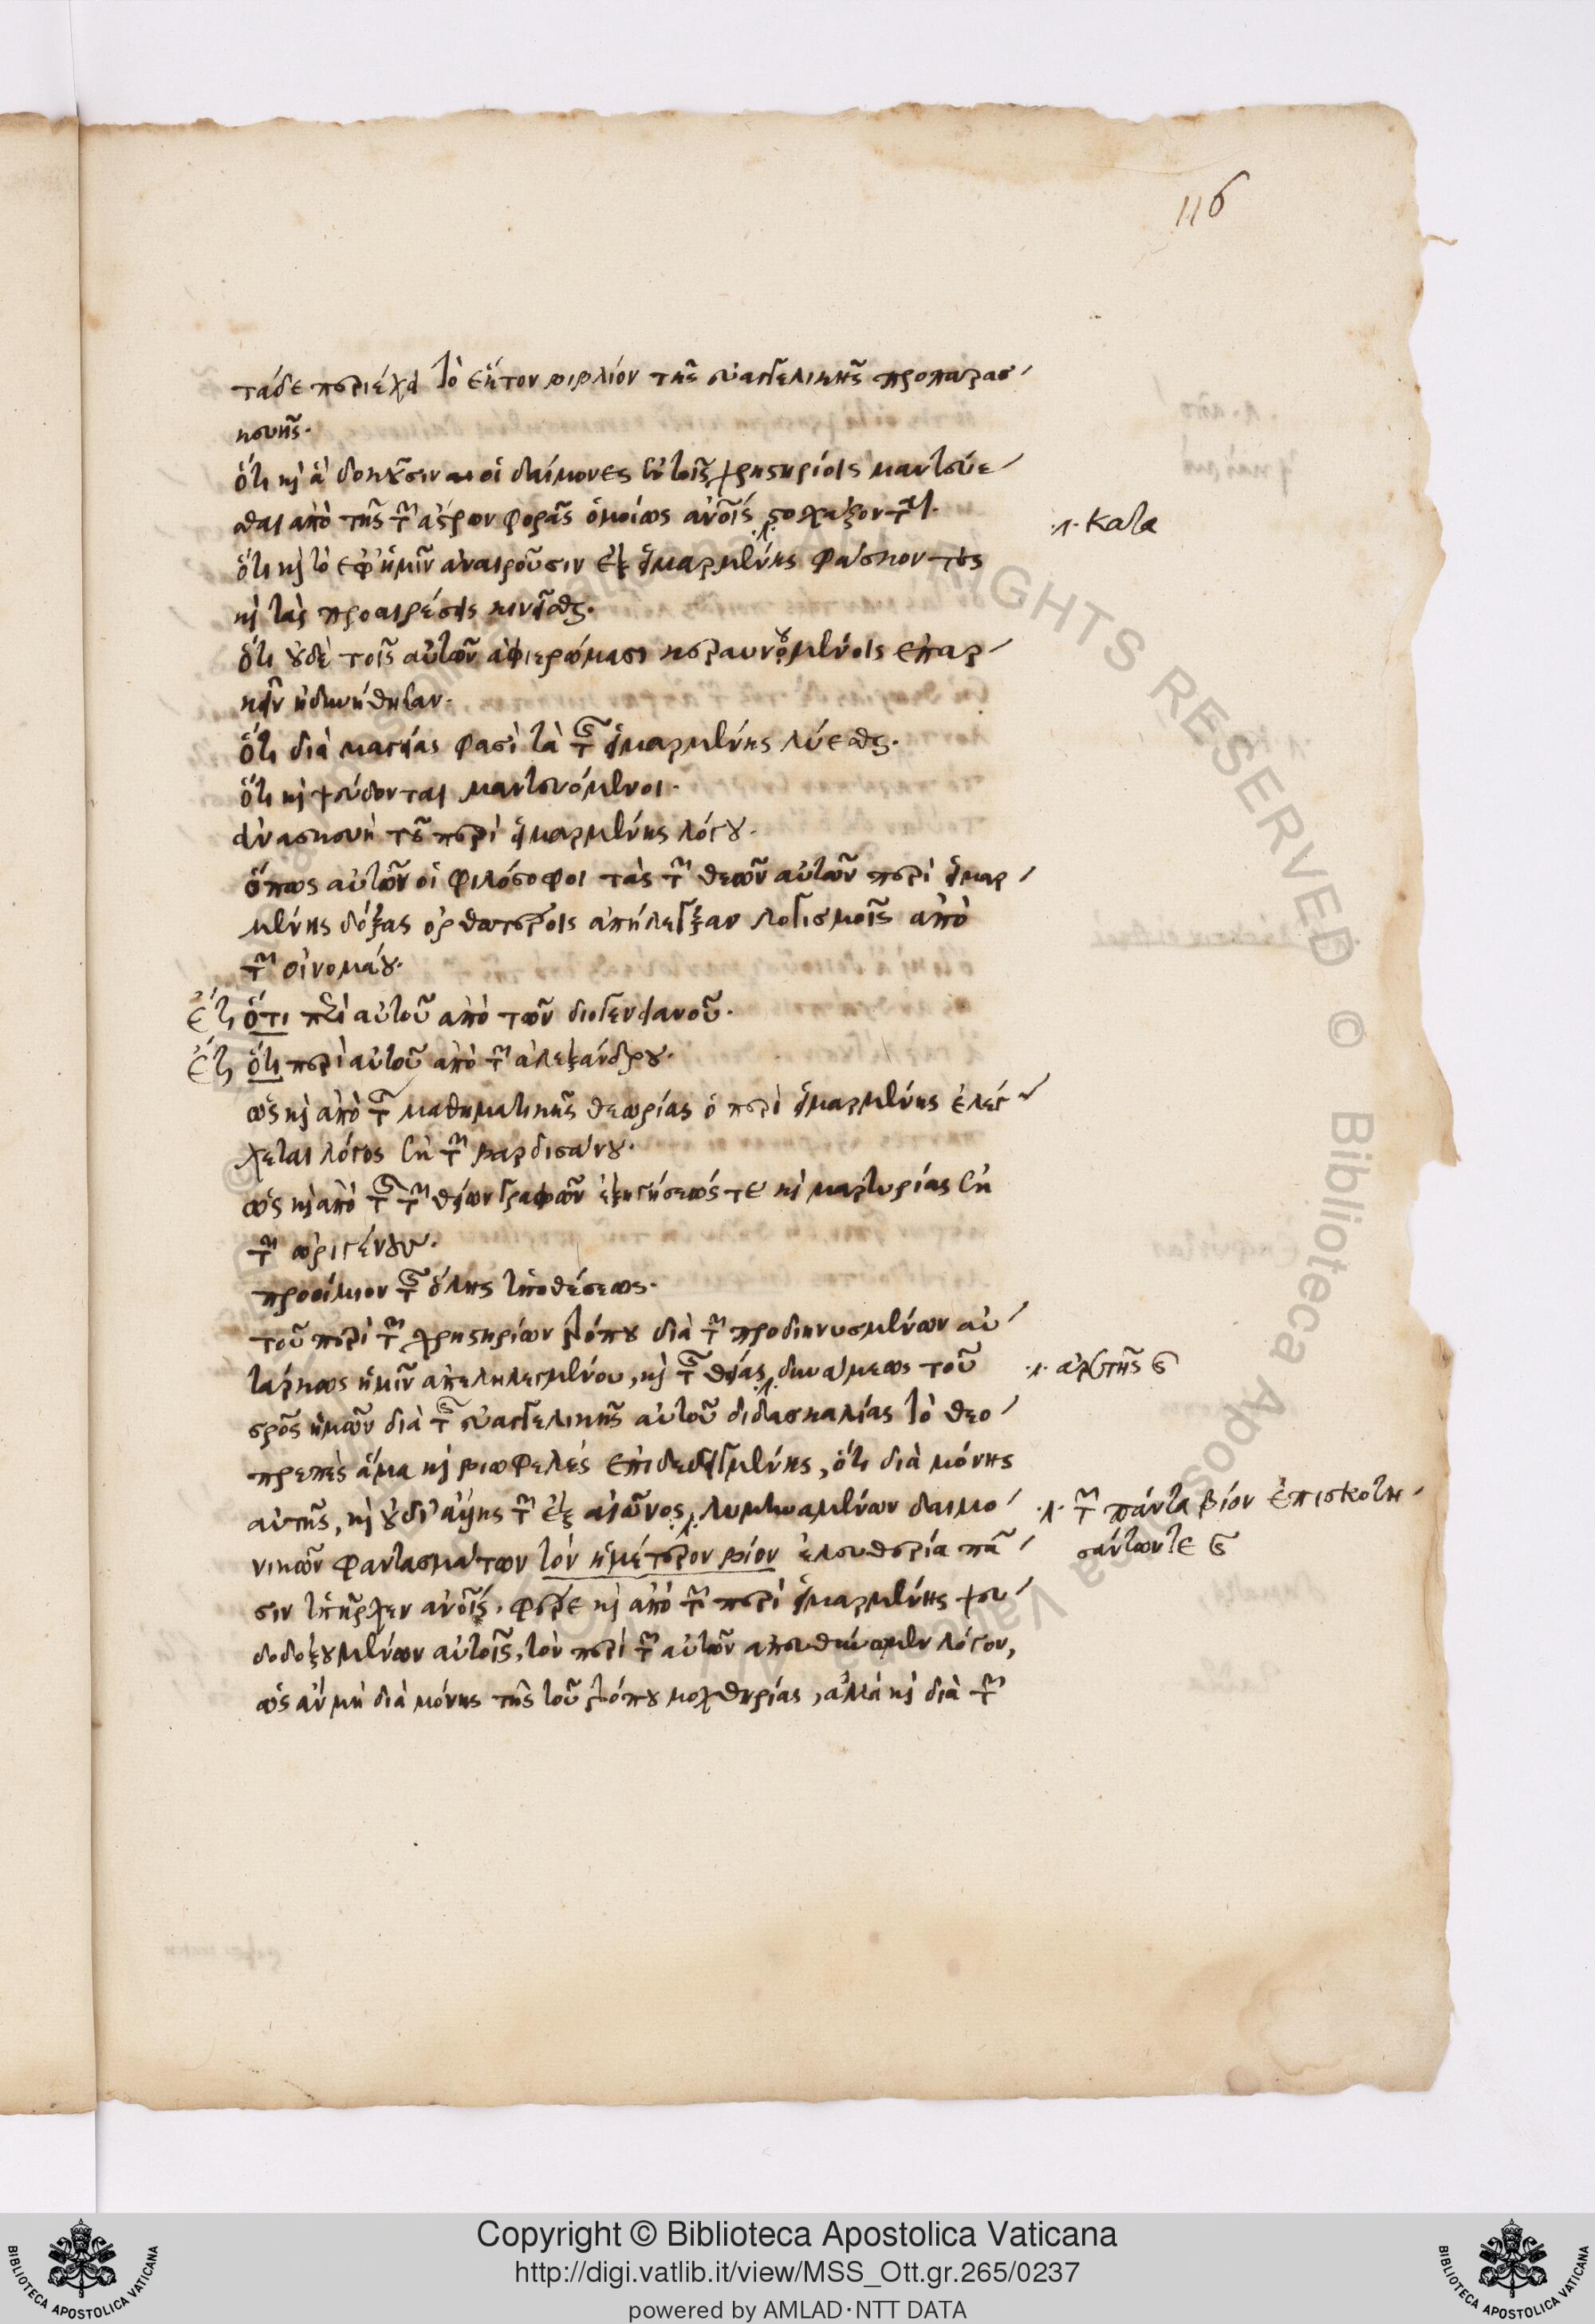 116
τάδε περιέχει τὸ ἕκτον βιβλίον τῆς εὐαγγελικῆς προπαρασ
κευῆς.
ὅτι καὶ ἃ δοκοῦσιν οἱ δαίμονες ἐν τοῖς χρηστηρίοις μαντεύε
σθαι ἀπὸ τῆς τῶν ἄστρων φορᾶς ὁμοίως ἀνθρώποις στοχάζονται.
·λ· κατα
ὅτι καὶ τὸ ἐφ' ἡμῖν ἀναιροῦσιν ἐξ εἱμαρμένης φάσκοντες
καὶ τὰς προαιρέσεις κινεῖσθαι.
ὅτι οὐδὲ τοῖς αὐτῶν ἀφιερώμασι κεραυνουμένοις ἐπαρ
κεῖν ἠδυνήθησαν.
ὅτι διὰ μαγείας φασὶ τὰ τῆς εἱμαρμένης λύεσθαι.
ὅτι καὶ ψεύδονται μαντευόμενοι.
ἀνασκευὴ τοῦ περὶ εἱμαρμένης λόγου.
ὅπως αὐτῶν οἱ φιλόσοφοι τὰς τῶν θεῶν αὐτῶν περὶ εἱμαρ
μένης δόξας ὀρθοτέροις ἀπήλεγξαν λογισμοῖς ἀπὸ
τῶν οἰνομάου.
ἔτι ὅτι περὶ αὐτοῦ ἀπὸ τῶν διογενειανοῦ.
ἔτι ὅτι περὶ αὐτοῦ ἀπὸ τῶν ἀλεξάνδρου.
ὡς καὶ ἀπὸ τῆς μαθηματικῆς θεωρίας ὁ περὶ εἱμαρμένης ἐλέγ
χεται λόγος ἐκ τῶν βαρδισάνου.
ὡς καὶ ἀπὸ τῆς τῶν θείων γραφῶν ἐξηγήσεώς τε καὶ μαρτυρίας ἐκ
τῶν ὠριγένους.
προοίμιον τῆς ὅλης ὑποθέσεως.
τοῦ περὶ τῶν χρηστηρίων τρόπου διὰ τῶν προδιηνυσμένων αὐ
τάρκως ἡμῖν ἀπεληλεγμένου, καὶ τῆς θείας δυνάμεως τοῦ
·λ· ἀρετῆς
σωτῆρος ἡμῶν διὰ τῆς εὐαγγελικῆς αὐτοῦ διδασκαλίας τὸ θεο
πρεπὲς ἅμα καὶ βιωφελὲς ἐπιδεδειγμένης, ὅτι διὰ μόνης
αὐτῆς, καὶ οὐ δι' ἄλλης τῶν ἐξ αἰῶνος λυμηναμένων δαιμο
·λ· τῶν πάντα βίον ἐπισκοτη
νικῶν φαντασμάτων τὸν ἡμέτερον βίον ἐλευθερία πᾶ
σάντων τε
σιν ὑπῆρξεν ἀνθρώποις. φέρε καὶ ἀπὸ τῶν περὶ εἱμαρμένης ψευ
δοδοξουμένων αὐτοῖς, τὸν περὶ τῶν αὐτῶν ἀπευθύνωμεν λόγον,
ὡς ἂν μὴ διὰ μόνης τῆς τοῦ τρόπου μοχθηρίας, ἀλλὰ καὶ διὰ τῶν
Copyright © Biblioteca Apostolica Vaticana
http://digi.vatlib.it/view/MSS_Ott.gr.265/0237
powered by AMLAD·NTT DATA